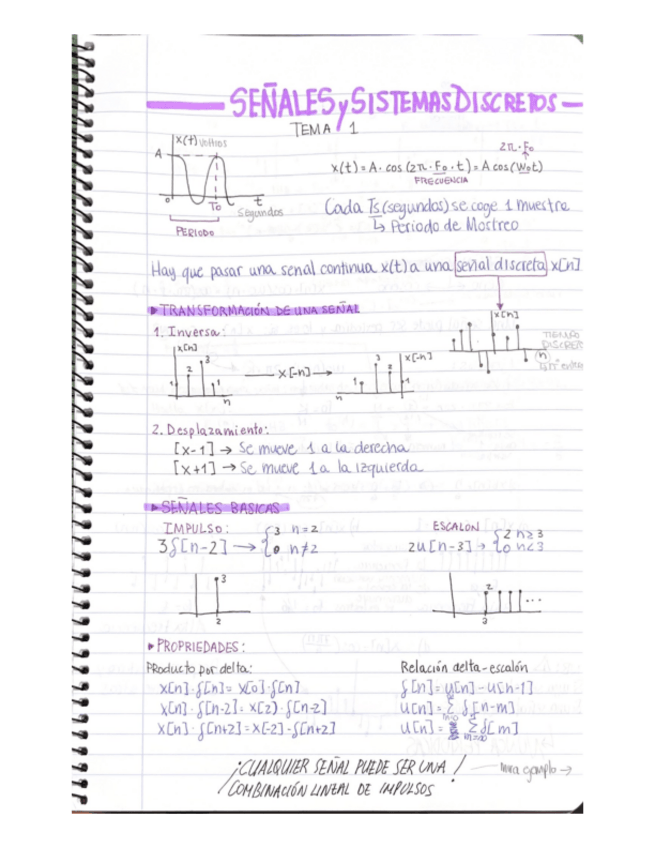 SEÑALES y SISTEMAS DISCRETOS
TEMA 1
x(t) Voltios
A
0
To
t
Segundos
PERIODO
2π·Fo
x(t) = A· cos (2π·Fo·t) = A cos(Wot)
FRECUENCIA
Cada Ts (segundos) se coge 1 muestra
↳ Periodo de Mostreo
Hay que pasar una senal continua x(t) a una señal discreta x[n]
▸TRANSFORMACIÓN DE UNA SEÑAL
x[n]
TIEMPO
DISCRETO
n
1. Inversa:
x[n]
1 2 3 1
n
→ x[-n] →
x[-n]
1 3 2 1
n
2. Desplazamiento:
[x-1] → Se mueve 1 a la derecha
[x+1] → Se mueve 1 a la izquierda
▸SEÑALES BASICAS
IMPULSO:
3δ[n-2] → { 3 n=2
0 n≠2
ESCALÓN
2u[n-3] → { 2 n≥3
0 n<3
3
2
2
...
3
▸PROPRIEDADES:
Producto por delta:
x[n]·δ[n]= x[0]·δ[n]
x[n]·δ[n-2]= x(2)·δ[n-2]
x[n]·δ[n+2]= x[-2]·δ[n+2]
Relación delta-escalón
δ[n]= u[n]-u[n-1]
u[n]= Σ δ[n-m]
u[n]= Σ δ[m]
¡CUALQUIER SEÑAL PUEDE SER UNA
COMBINACIÓN LINEAL DE IMPULSOS !
mira ejemplo →